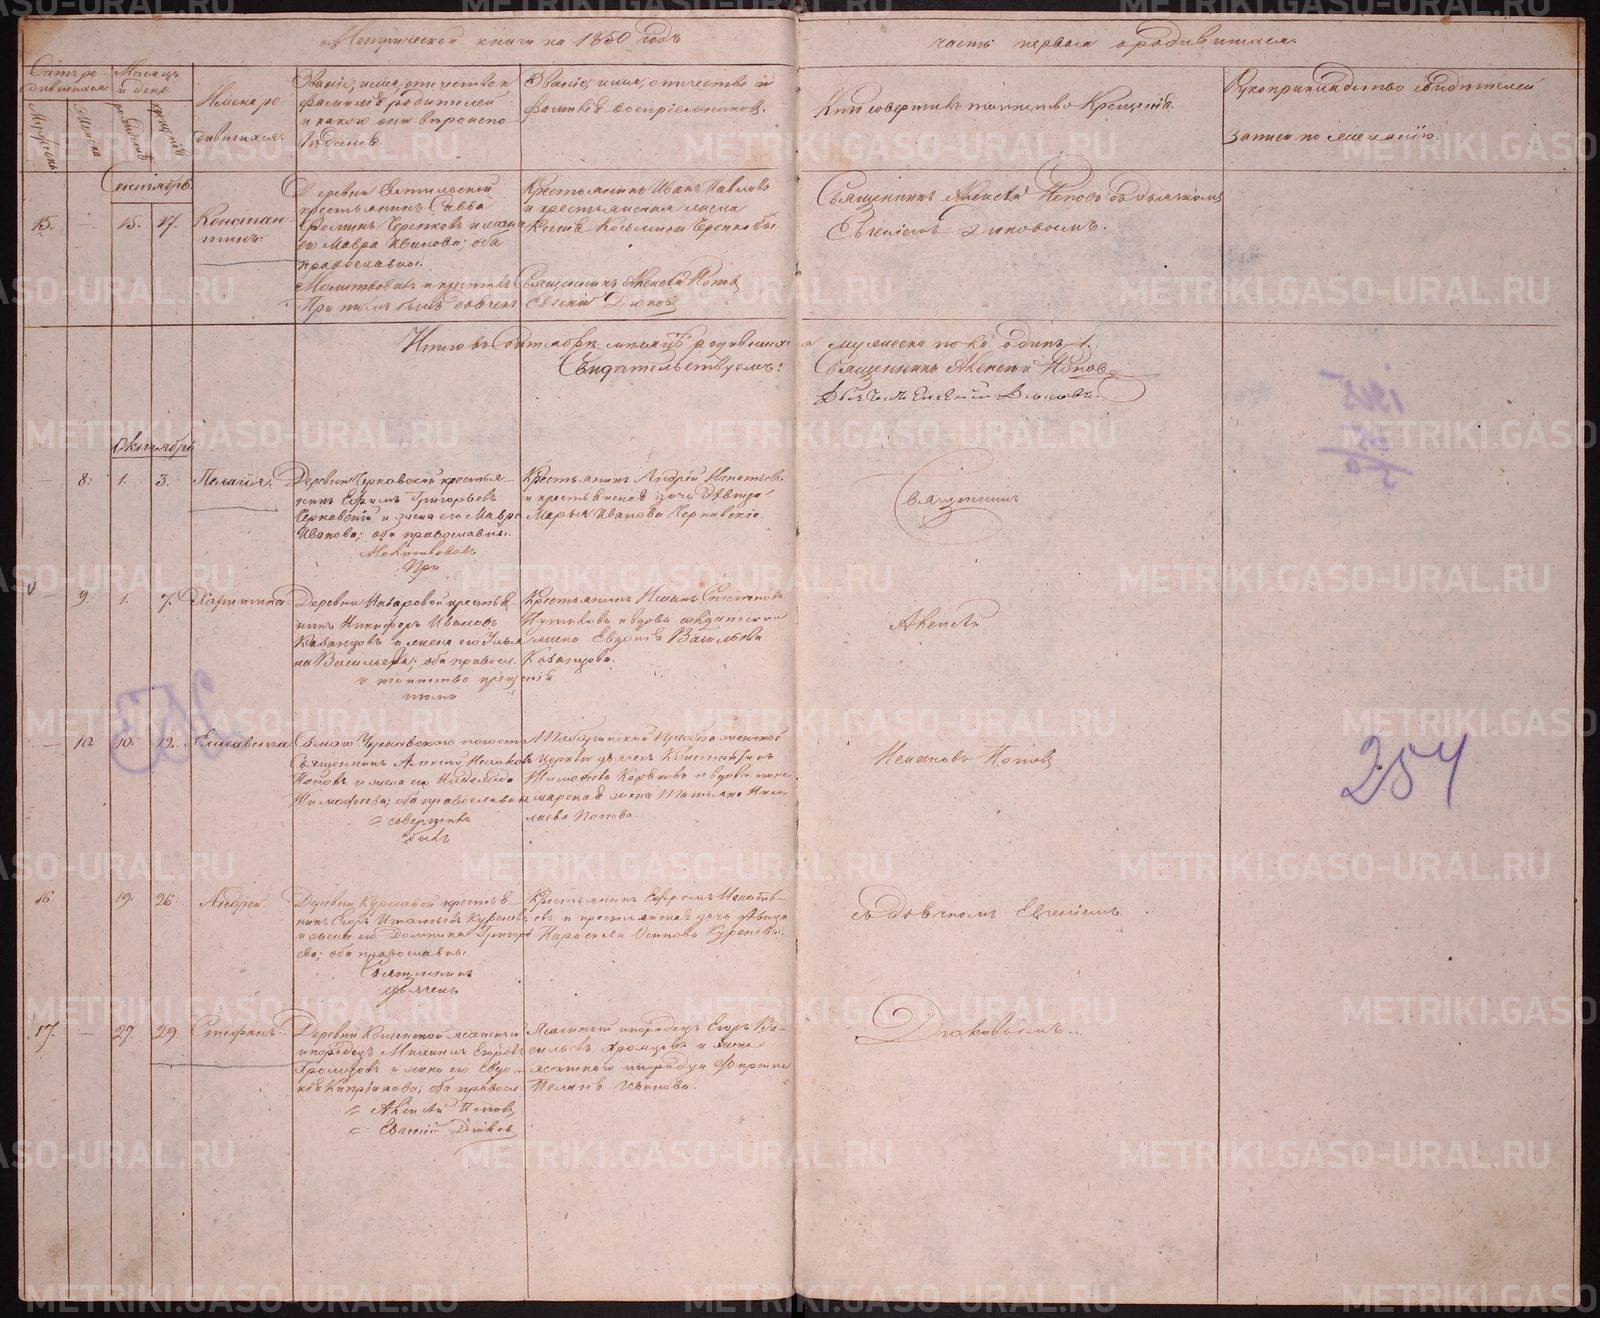 Метрической книги на 1850 годъ
часть первая о родившихся.
Счетъ ро-
дившихся
Мужеска
Женска
Месяцъ
и день
рожденія
крещенія
Имена ро
дившихся.
Званіе, имя, отчество и
фамилія родителей
и какого они вѣроиспо-
вѣданія.
Званіе, имя, отчество и
фамилія воспріемниковъ.
Кто совершилъ таинство Крещенія.
Рукоприкладство свидѣтелей
записи по желанію.
Сентябрь.
15. — 15. 17.
Констан-
тинъ.
Деревни
крестьянинъ Савва
Ѳоминъ Черепковъ и жена
его Мавра Иванова; оба
православны.
Молитвовалъ и крестилъ
При томъ былъ дьячекъ
Крестьянинъ Иванъ Павловъ
и крестьянская жена
Козьмина Черепковы
Священникъ Алексѣй Поповъ
Евгеній Дюковъ
Священникъ Алексѣй Поповъ съ дьячкомъ
Евгеніемъ Дюковымъ.
Итого въ Сентябрѣ мѣсяцѣ родившихся мужеска пола одинъ 1.
Свидѣтельствуемъ:
Священникъ Алексѣй Поповъ
Дьячекъ Евгеній Дюковъ.
Октябрь
— 8. 1. 3. Пелагія.
Деревни Чернавской крестья-
нинъ Ефимъ Григорьевъ
Чернавскій и жена его Мавра
Иванова; оба православны.
Молитвовалъ
При
Крестьянинъ Андрей Игнатьевъ
и крестьянская дочь дѣвица
Марья Иванова Чернавскіе.
Священникъ
— 9. 1. 7. Харитина.
Деревни Назаровой крестья-
нинъ Никифоръ Ивановъ
Казанцовъ и жена его Улья
на Васильева; оба правосл.
и таинство крещенія
томъ
Крестьянинъ
и вдова солдатская
жена Евдокія Васильева
Казанцова.
Алексѣй
— 10 10. 12. Елисавета
Самаго Чернавского погоста
Священникъ Алексѣй Исааковъ
Поповъ и жена его Надежда
Тимофеева; оба православны
совершилъ
былъ
церкви дьячекъ Константинъ
Тимофеевъ и вдова поно-
марская жена Татьяна Нико-
лаева Попова.
Исааковъ Поповъ
16. — 19. 26. Андрей.
Деревни Куреневой крестья-
нинъ Егоръ Игнатьевъ Куреневъ
и жена его Домника Григорь
ева; оба православны.
Священникъ
дьячекъ
Крестьянинъ Ефремъ Игнать-
евъ и крестьянская дочь дѣвица
Параскева Осипова Куреневы.
съ дьячкомъ Евгеніемъ
17. — 27. 29. Стефанъ.
Деревни ясашный
инородецъ Михаилъ Егоровъ
Хромцовъ и жена его Евдо-
кія Кипріанова; оба правосл.
Алексѣй Поповъ
Евгеній Дюковъ
Ясашный инородецъ Егоръ Ва-
сильевъ Хромцовъ и жена
ясашнаго инородца
Пелагія Иванова.
Дюковымъ.
254
METRIKI.GASO-URAL.RU